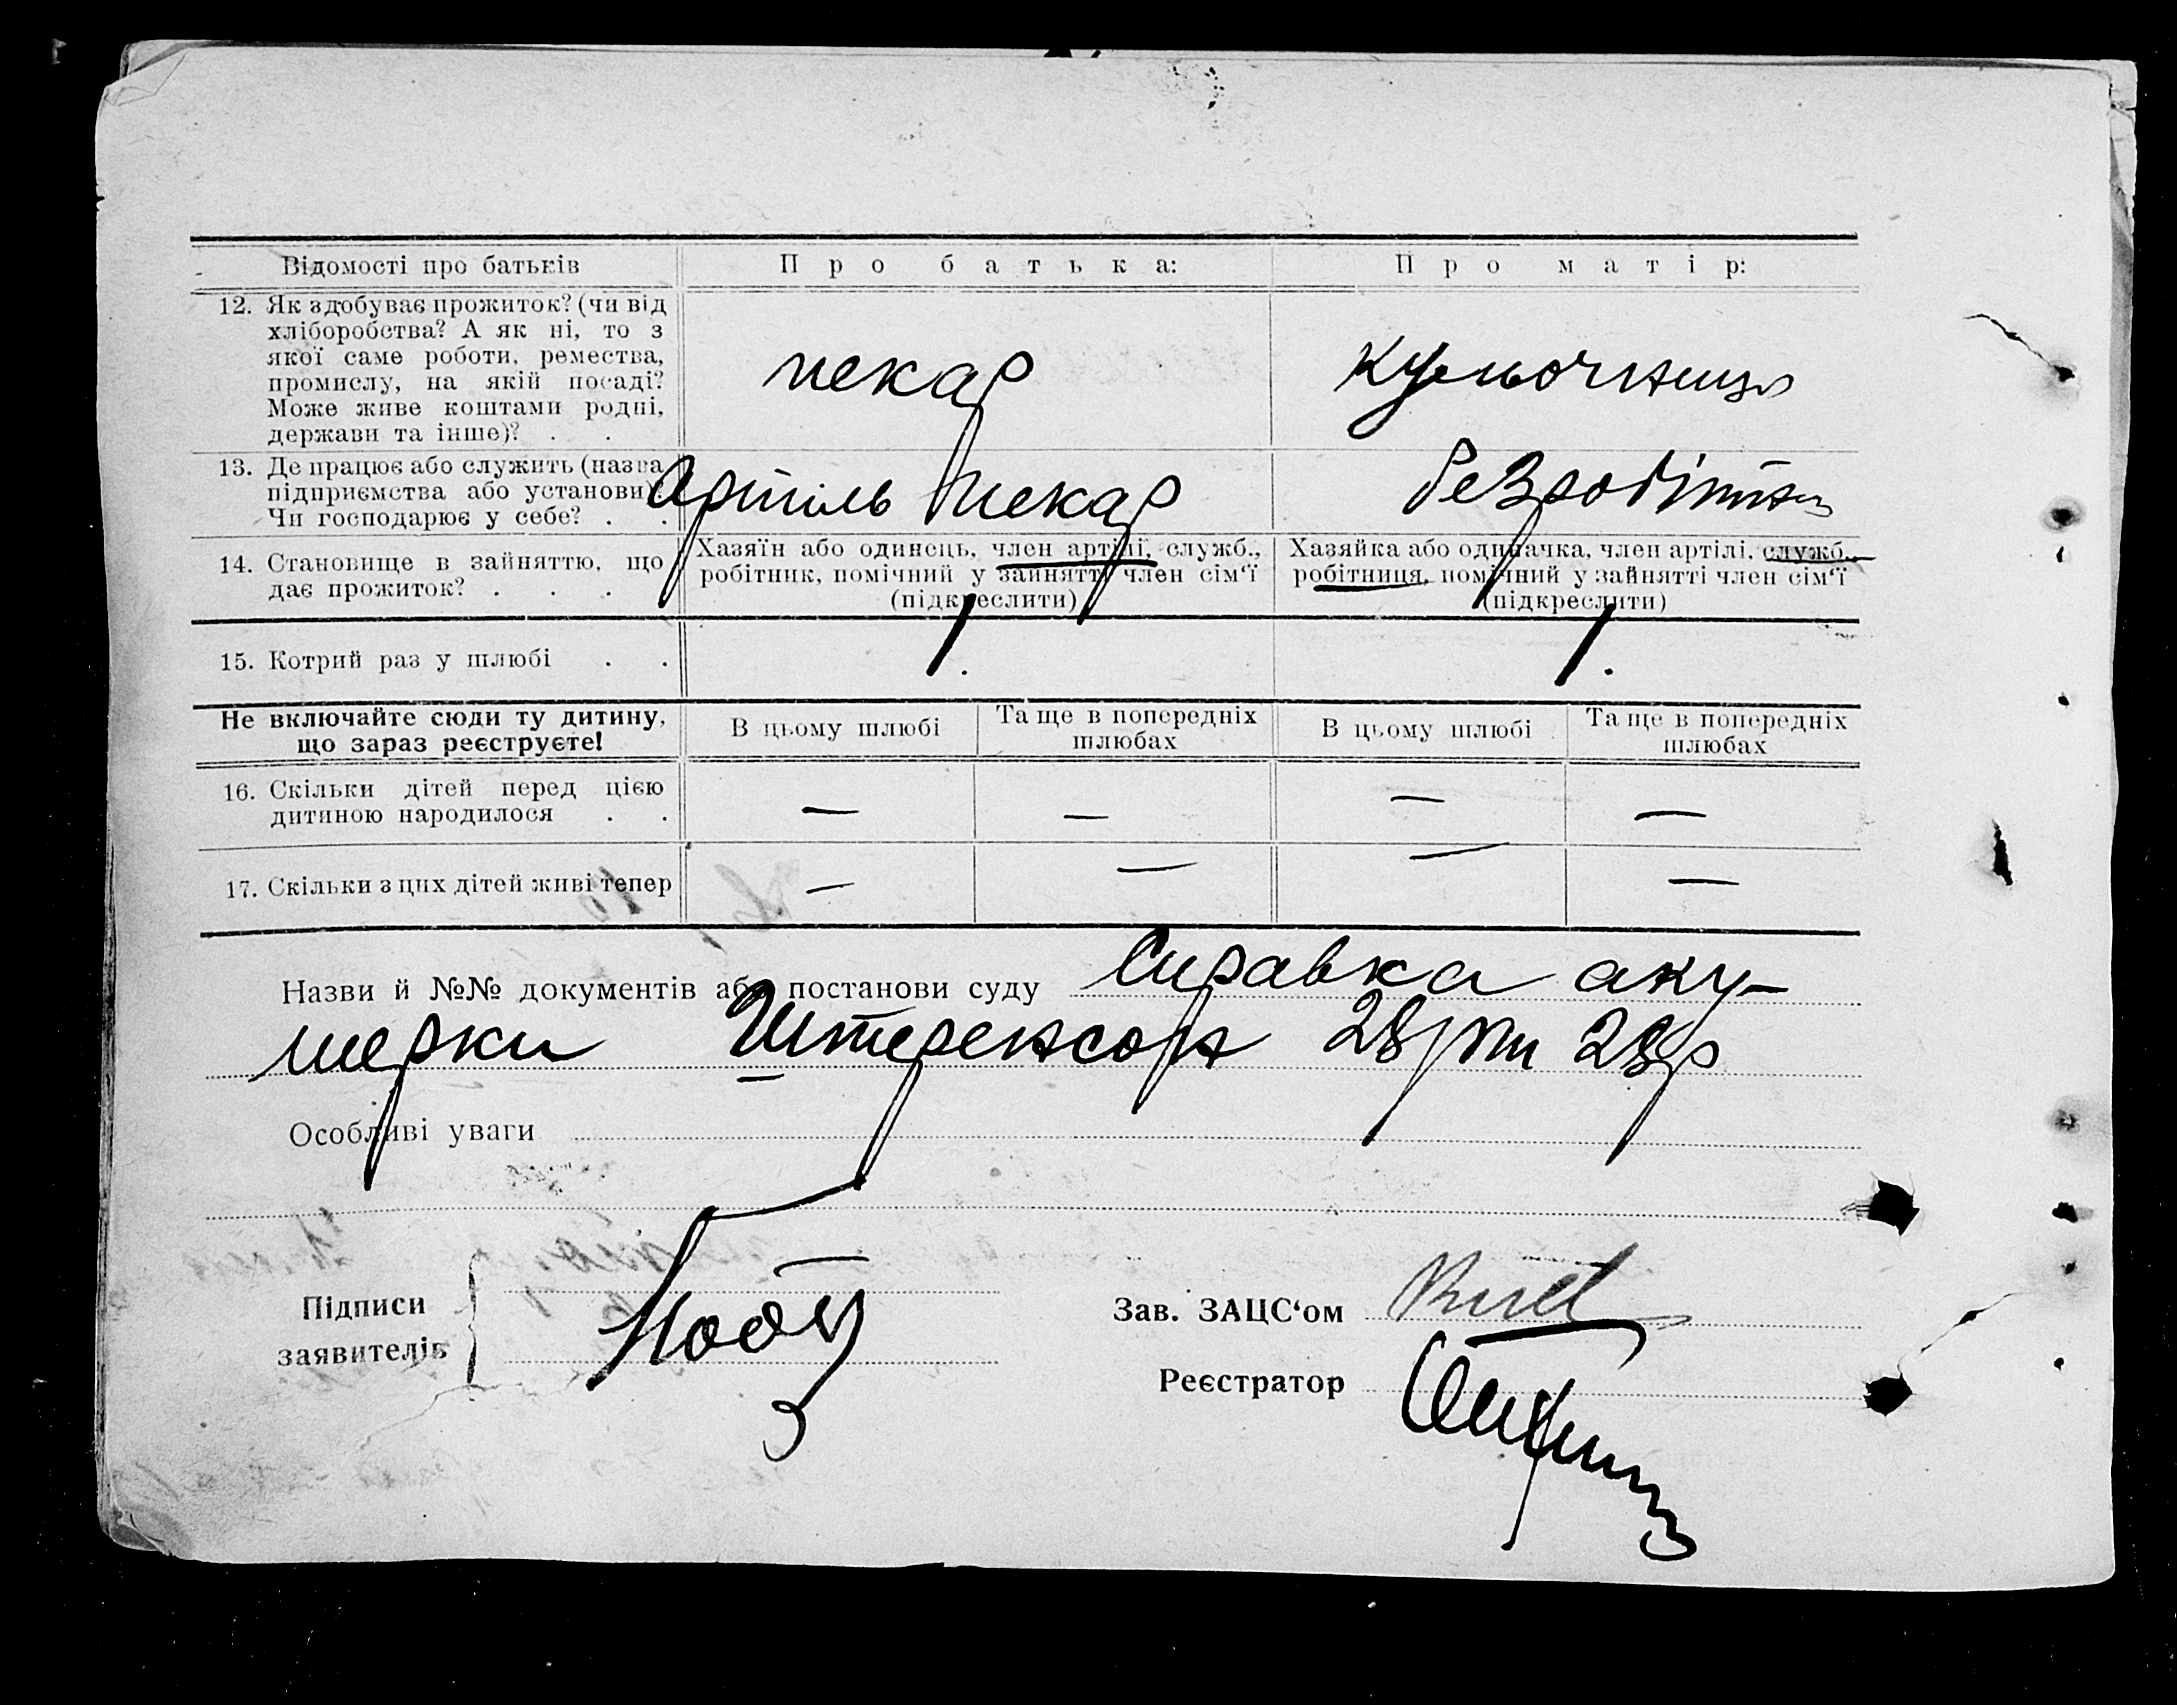 Відомості про батьків
Про батька:
Про матір:
12. Як здобуває прожиток? (чи від
хліборобства? А як ні, то з
якої саме роботи, ремества,
промислу, на якій посаді?
Може живе коштами родні,
держави та інше)? . .
пекар
кульочниця
13. Де працює або служить (назва
підприємства або установи).
Чи господарює у себе? . .
Артіль Пекар
безробітна
14. Становище в зайняттю, що
дає прожиток? . . .
Хазяїн або одинець, член артілі, служб.,
робітник, помічний у зайнятті член сім'ї
(підкреслити)
Хазяйка або одиначка, член артілі, служб.,
робітниця, помічний у зайнятті член сім'ї
(підкреслити)
15. Котрий раз у шлюбі . .
1.
1.
Не включайте сюди ту дитину,
що зараз реєструєте!
В цьому шлюбі
Та ще в попередніх
шлюбах
В цьому шлюбі
Та ще в попередніх
шлюбах
16. Скільки дітей перед цією
дитиною народилося . .
— — — —
17. Скільки з цих дітей живі тепер
— — — —
Назви й №№ документів або постанови суду Справка аку-
шерки 28р
Особливі уваги
Підписи
заявителів
Зав. ЗАЦС'ом
Реєстратор